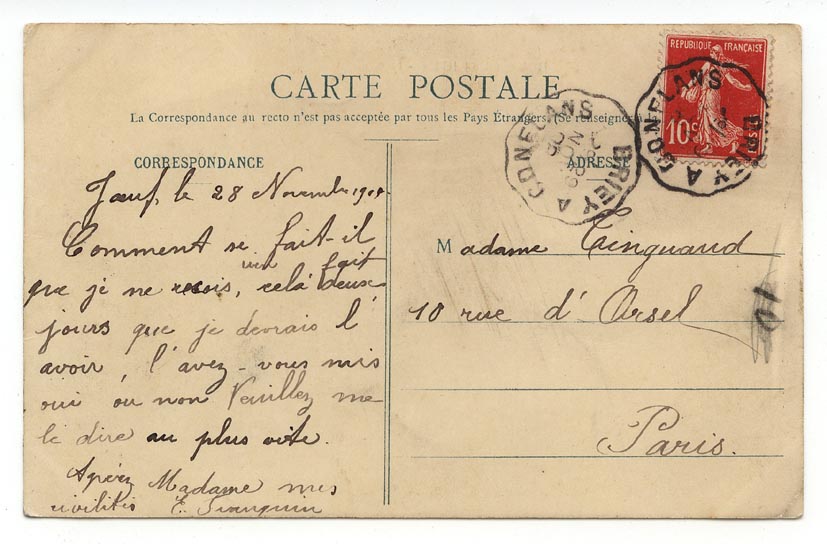 CARTE POSTALE
La Correspondance au recto n'est pas acceptée par tous les Pays Étrangers. (Se renseigner à
CORRESPONDANCE
ADRESSE
REPUBLIQUE FRANÇAISE
10c
BRIEY A CONFLANS
BRIEY A CONFLANS
Jœuf, le 28 Novembre
Comment se fait-il
rien fait
que je ne reçois, celà deux
jours que je devrais l'
avoir, l'avez-vous mis
oui ou non Veuillez me
le dire au plus vite.
Madame mes
civilités E.
Madame
10 rue d'Orsel
Paris.
10